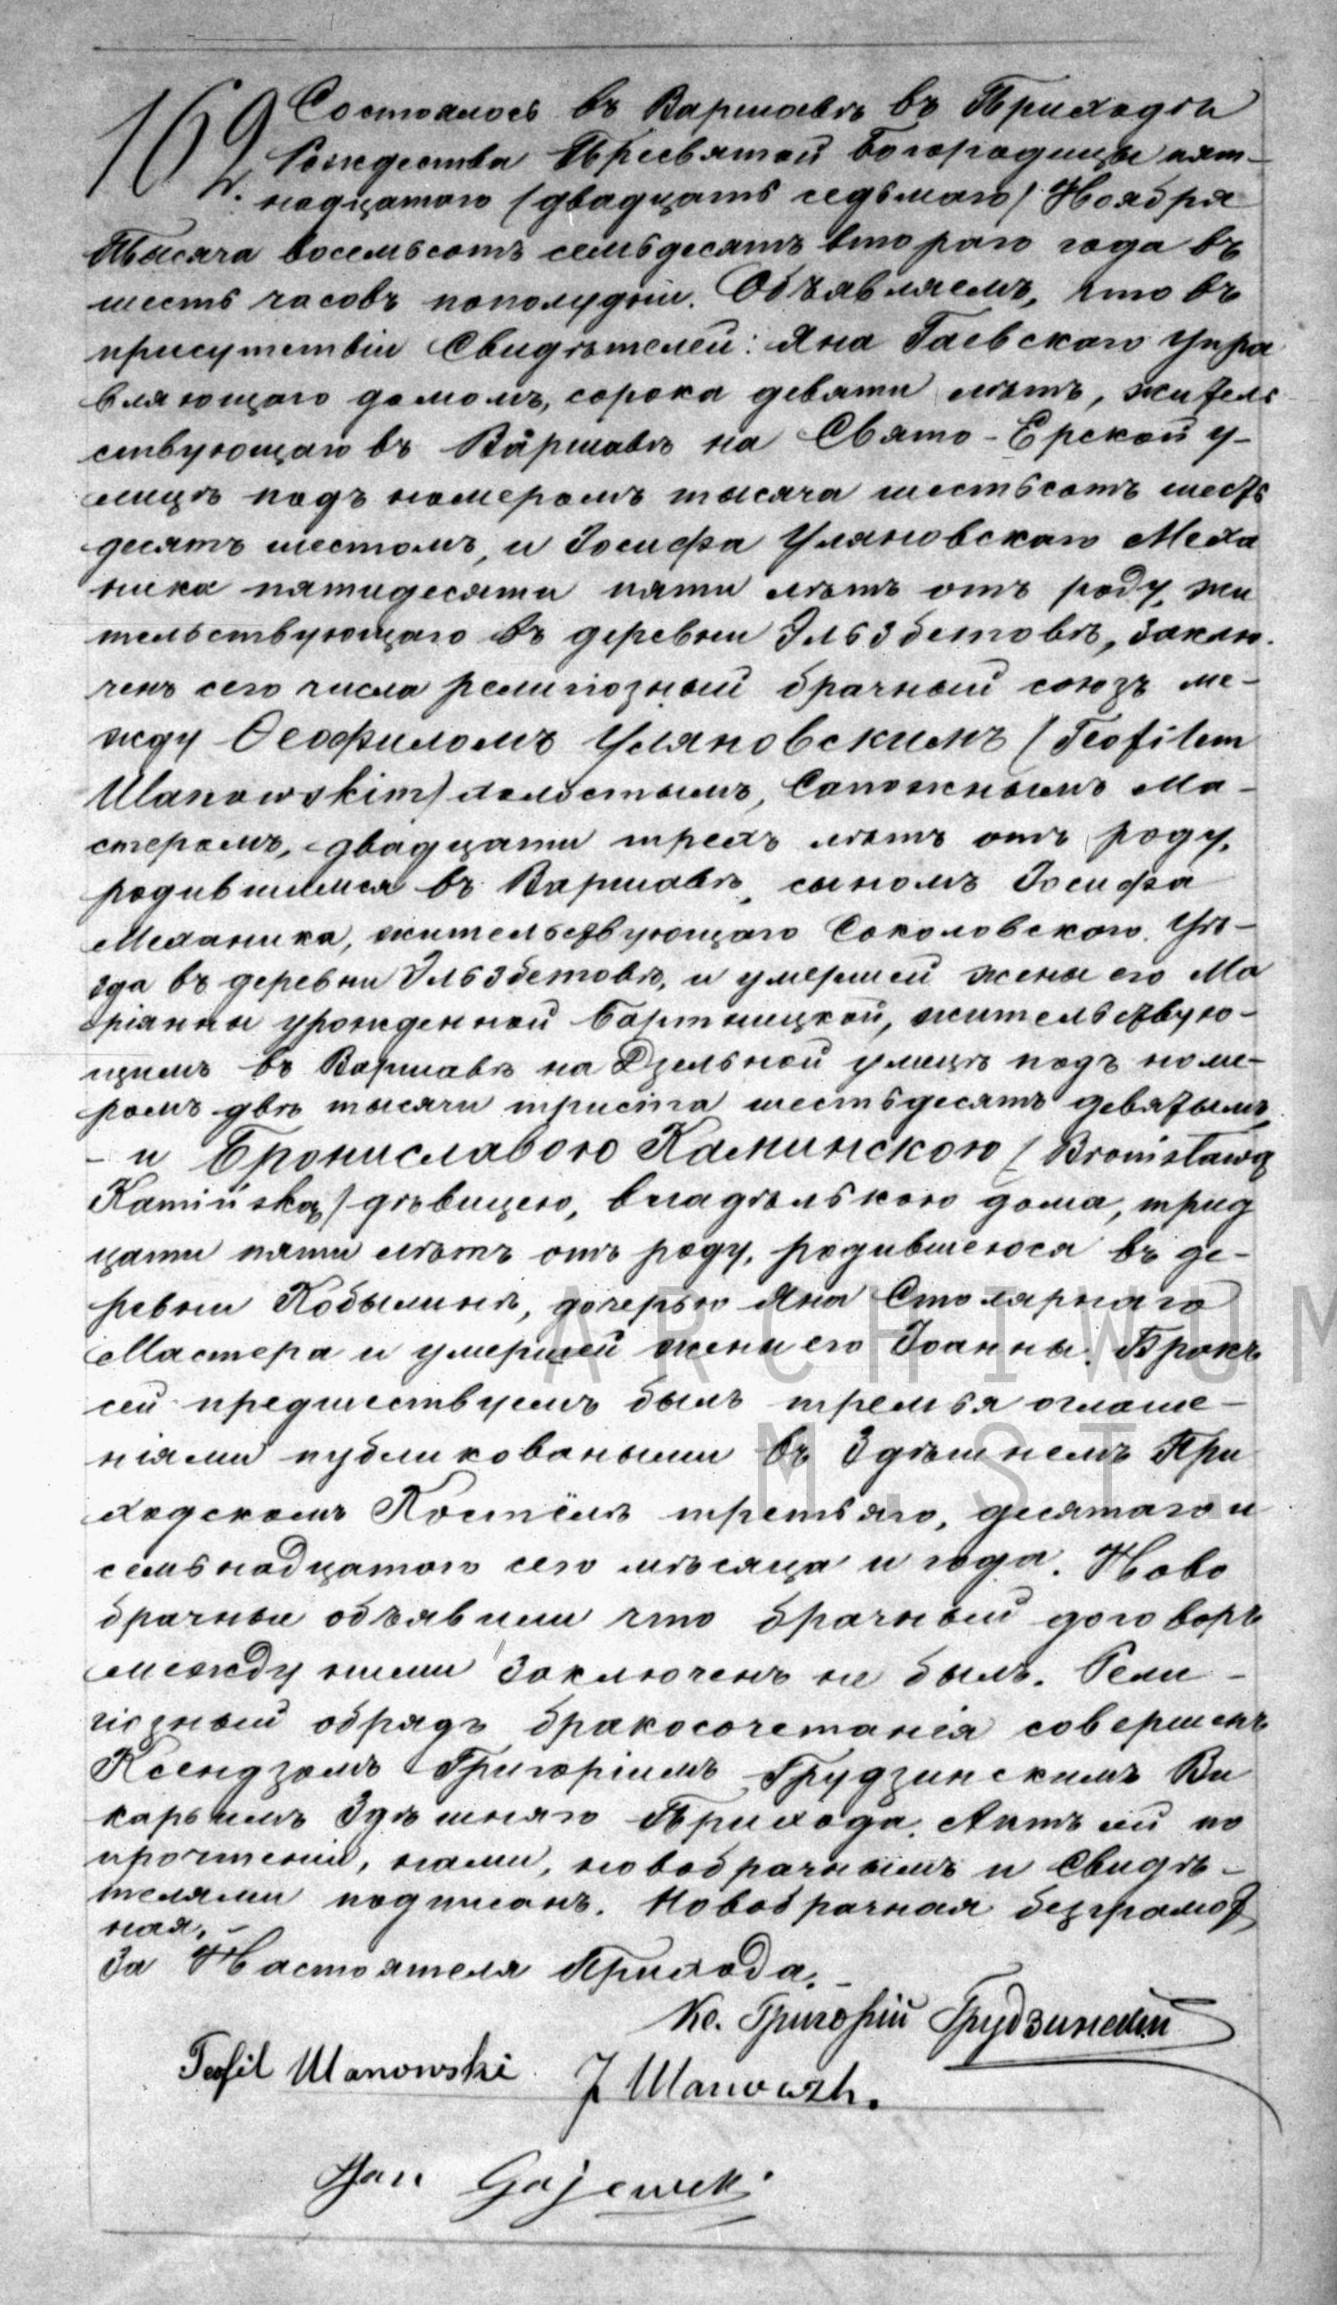 162. Состоялось въ Варшавѣ въ Приходѣ
Рождества Пресвятой Богородицы пят-
надцатого /двадцать седьмаго/ Ноября
Тысяча восемьсотъ семьдесятъ втораго года въ
шесть часовъ пополудни. Объявляемъ, что въ
присутствіи Свидѣтелей: Яна Гаевскаго Упра
вляющаго домомъ, сорока девяти лѣтъ, житель
ствующаго въ Варшавѣ на Свято-Ерской у-
лицѣ подъ номеромъ тысяча шестьсотъ шесть
десятъ шестомъ, и Іосифа Уляновскаго Меха
ника пятидесяти пяти лѣтъ отъ роду, жи
тельствующаго въ деревни Эльзбетовѣ, заклю-
ченъ сего числа религіозный брачный союзъ ме-
жду Ѳеофиломъ Уляновскимъ /Teofilem
Ulanowskim/ холостымъ, Сапожнымъ Ма-
стеромъ, двадцати трехъ лѣтъ отъ роду,
родившимся въ Варшавѣ, сыномъ Іосифа
Механика, жительствующаго Соколовскаго Уѣ-
зда въ деревни Эльзбетовѣ, и умершей жены его Ма
ріянны урожденной Бартницкой, жительствую-
щимъ въ Варшавѣ на Дзельной улицѣ подъ номе-
ромъ двѣ тысячи триста шестьдесятъ девятымъ,
- и Брониславою Каминскою /Bronisławą
Kamińską/ дѣвицею, владѣлькою дома, трид
цати пяти лѣтъ отъ роду, родившеюся въ де-
ревни Кобылинѣ, дочерью Яна Столярнаго
Мастера и умершей жены его Іоанны. Бракъ
сей предшествуемъ былъ тремья оглаше-
ніями публиковаными въ Здѣшнемъ При
ходскомъ Костёлѣ третьяго, десятаго и
семьнадцатого сего мѣсяца и года. Ново
брачные объявили что брачный договоръ
между ними заключенъ не былъ. Рели-
гіозный обрядъ бракосочетанія совершенъ
Ксендзомъ Григоріимъ Грудзинскимъ Ви
карьимъ Здѣшняго Прихода. Актъ сей по
прочтеніи, нами, новобрачнымъ и Свидѣ-
телями подписанъ. Новобрачная безграмот
ная.-
За Настоятеля Прихода.-
Кс. Григорій Грудзинскій
Teofil Ulanowski J Ulanowsk.
Jan Gajewski
ARCHIWUM
M. ST.